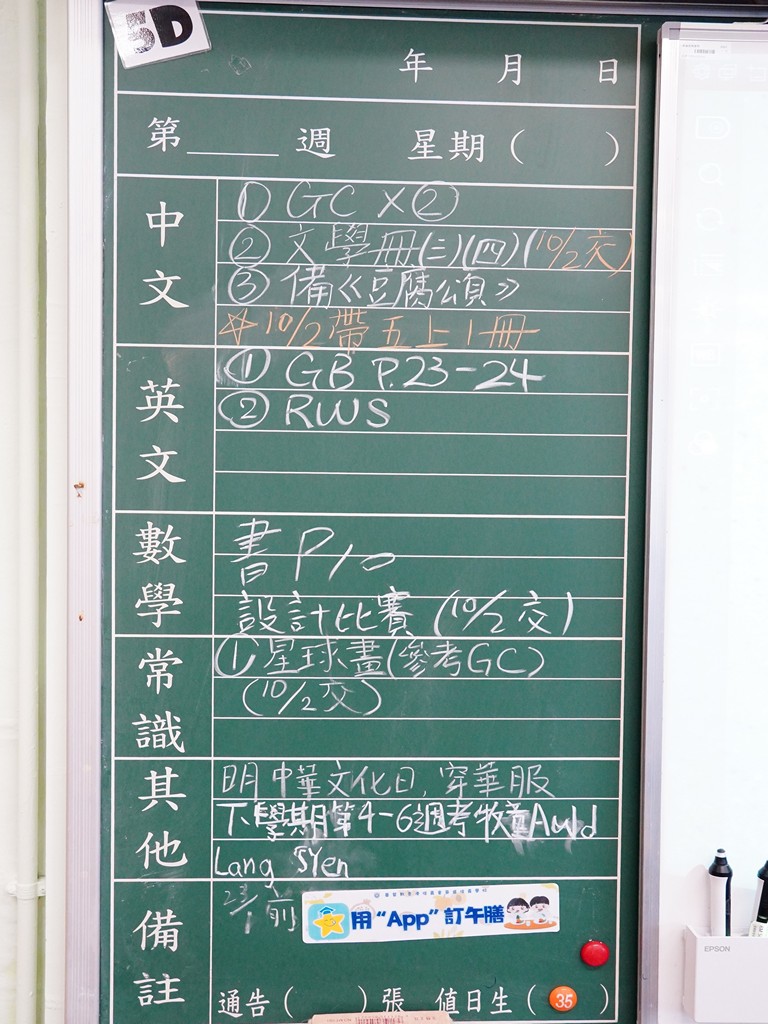 5D
年 月 日
第 週 星期( )
中文
① GC ×②
② 文學冊(三)(四)(10/2交)
③ 備《豆腐頌》
☆10/2帶五上1冊
英文
① GB P.23-24
② RWS
數學
書P10
設計比賽 (10/2交)
常識
① 星球畫(參考GC)
(10/2交)
其他
明中華文化日,穿華服
下學期第4-6週考牧童
Lang
備註
前
用“App”訂午膳
通告( )張 值日生(35)
EPSON